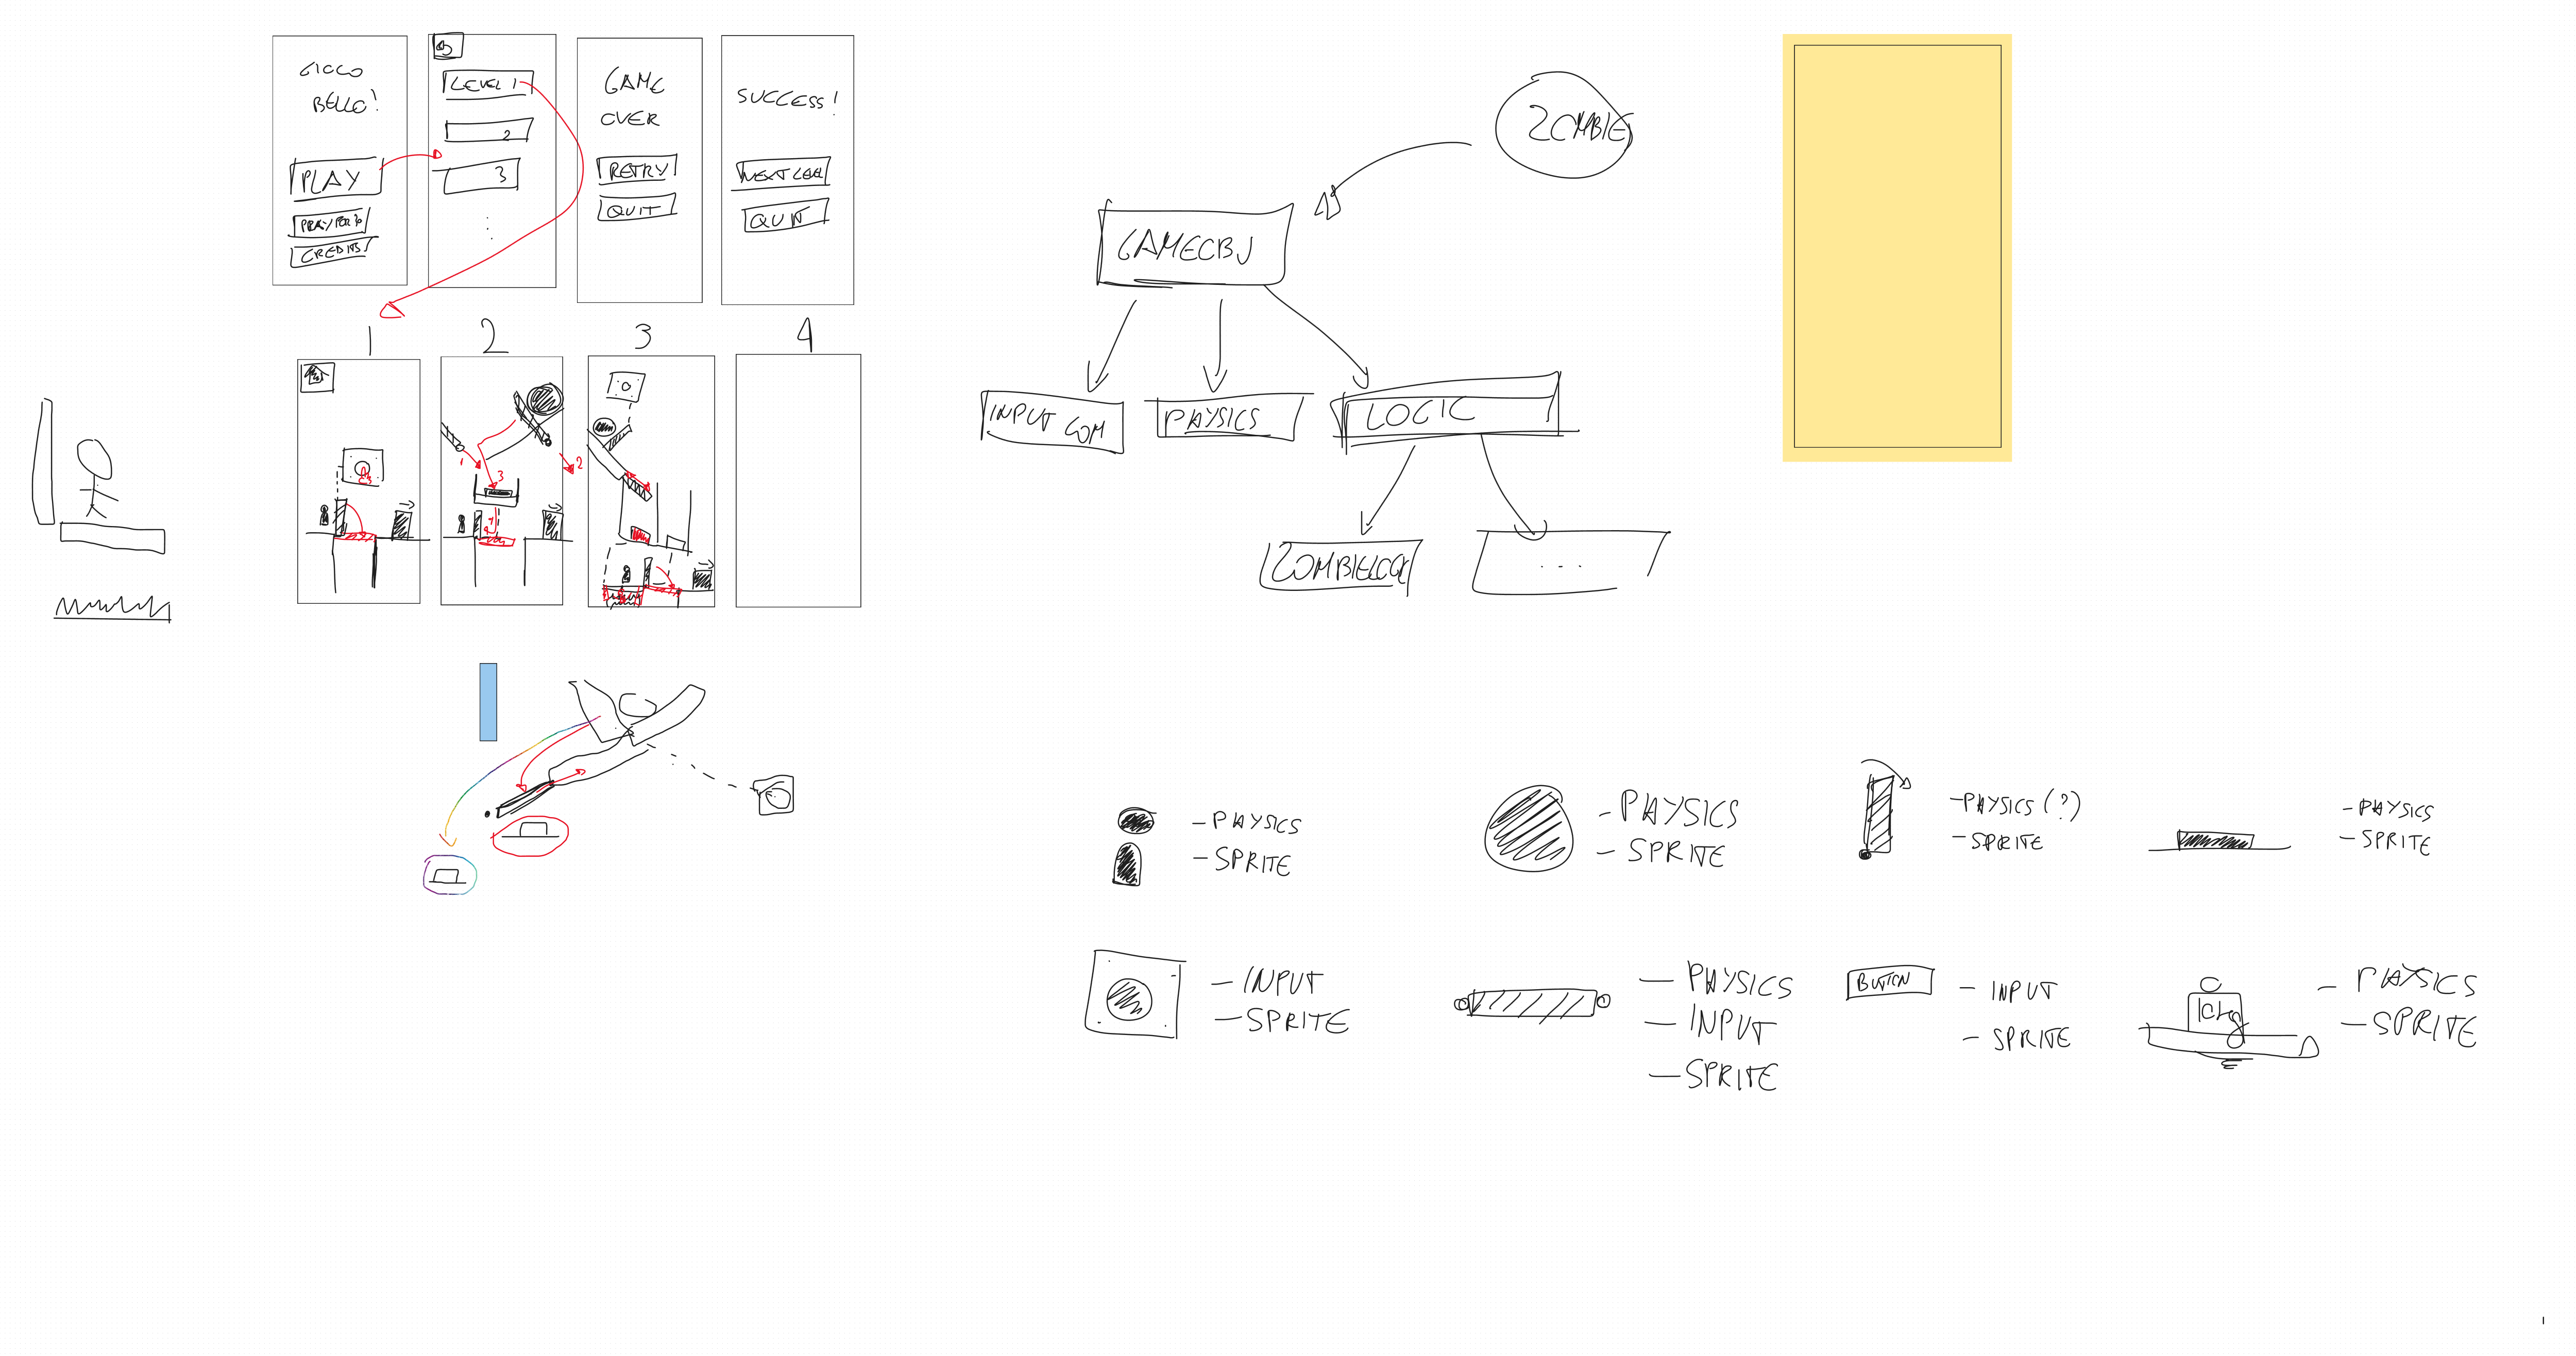 GIOCO
BELLO!
PLAY
CREDITS
LEVEL 1
2
3
GAME
OVER
RETRY
QUIT
SUCCESS!
NEXT LEVEL
QUIT
1
2
3
4
1
2
3
ZOMBIE
GAMEOBJ
INPUT COM
PHYSICS
LOGIC
...
- PHYSICS
- SPRITE
- PHYSICS
- SPRITE
- PHYSICS (?)
- SPRITE
- PHYSICS
- SPRITE
- INPUT
- SPRITE
- PHYSICS
- INPUT
- SPRITE
BUTTON
- INPUT
- SPRITE
- PHYSICS
- SPRITE